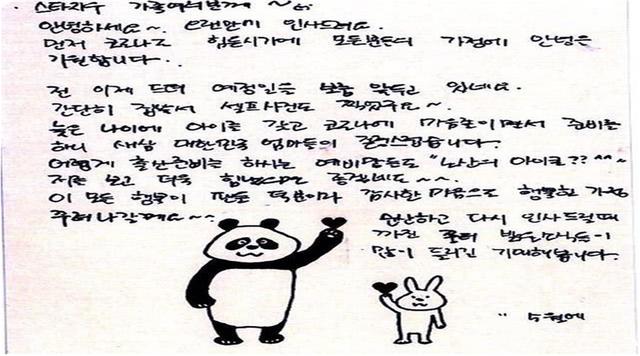 가족여러분께 ~
안녕하세요~. 오랜만에 인사드려요.
먼저 코로나로 힘든시기에 모든분들의 가정에 안녕을
기원합니다..
전 이제 드뎌 예정일을 보름 앞두고 있네요.
간단히 집에서 셀프사진도 찍었구요~.
늦은 나이에 아이를 갖고 코로나에 마음졸이면서 준비를
하니 새삼 대한민국 엄마들이 존경스럽습니다.
어렵게 출산준비를 하시는 예비맘들도 "노산의 아이콘?? ^^~
저를 보고 더욱 힘내셨으면 좋겠네요~~.
이 모든 행복이 팬들 덕분이라 감사한 마음으로 행복한 가정
꾸려나갈께요~~
출산하고 다시 인사드릴때
까진
많이 기대해봅니다.